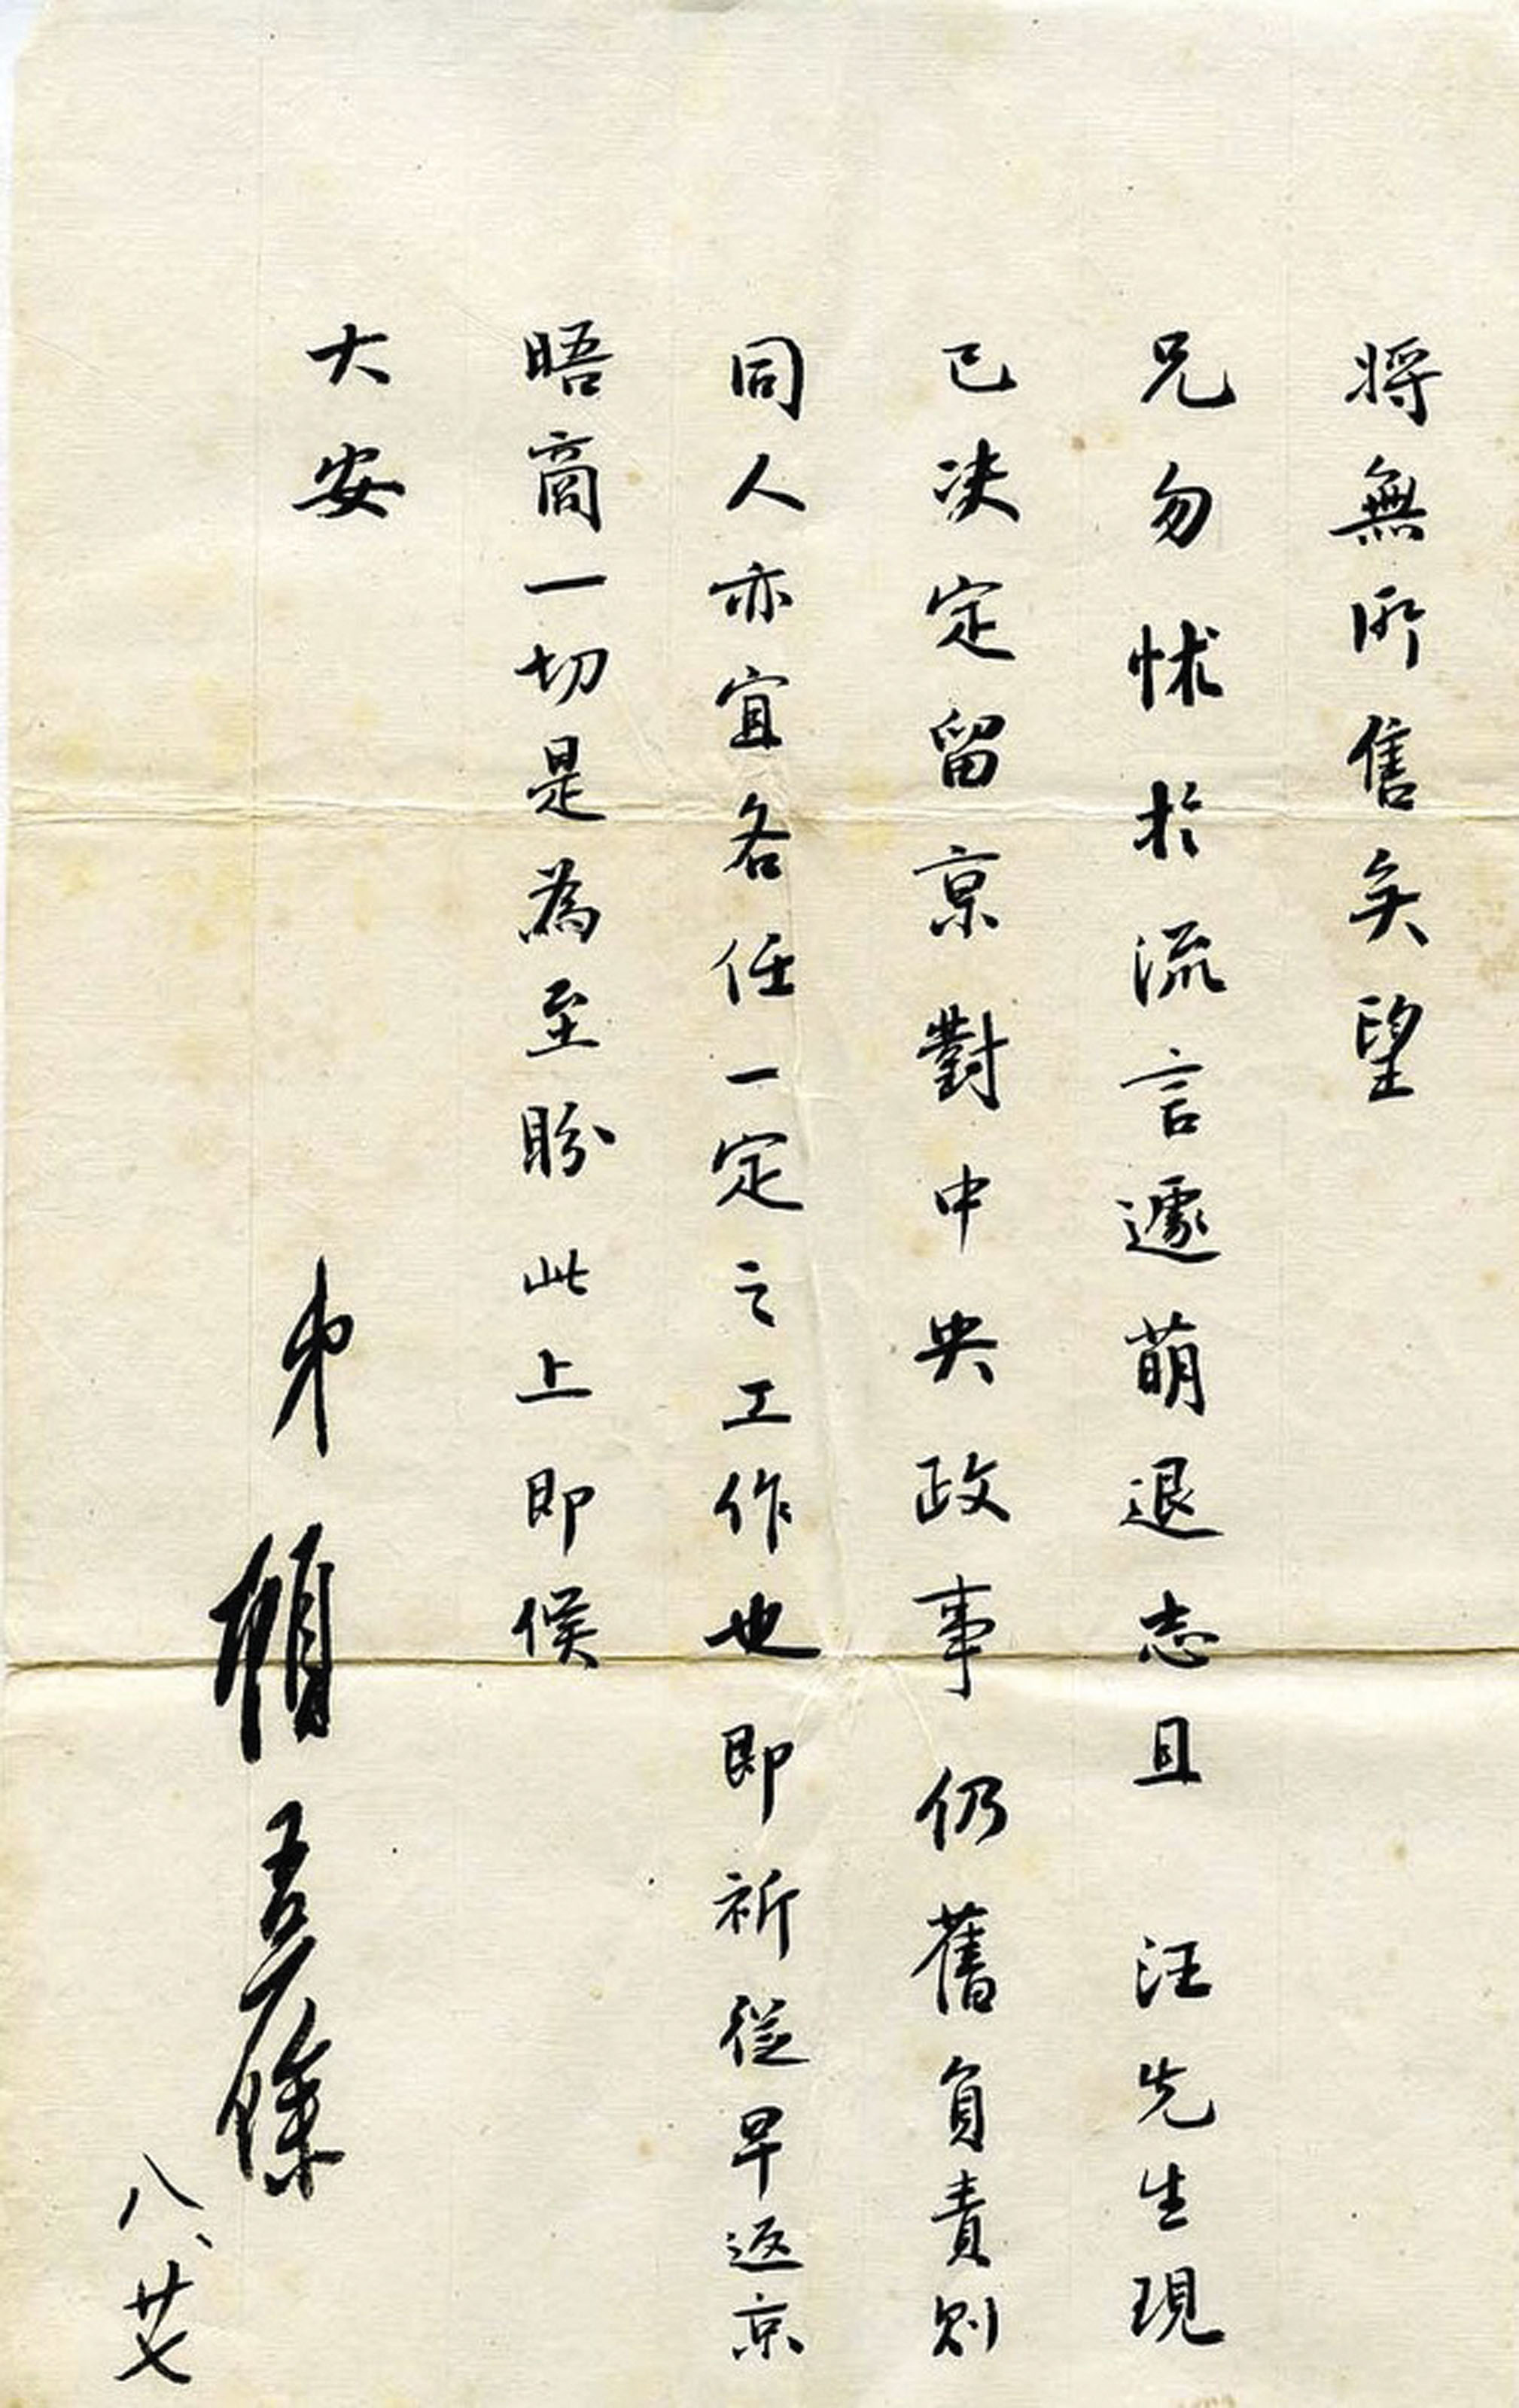 將無所售矣望
兄勿怵於流言遽萌退志且 汪先生現
已決定留京對中央政事仍舊負責則
同人亦宜各任一定之工作也即祈從早返京
晤商一切是為至盼此上即候
大安
弟顧孟餘
八、廿七